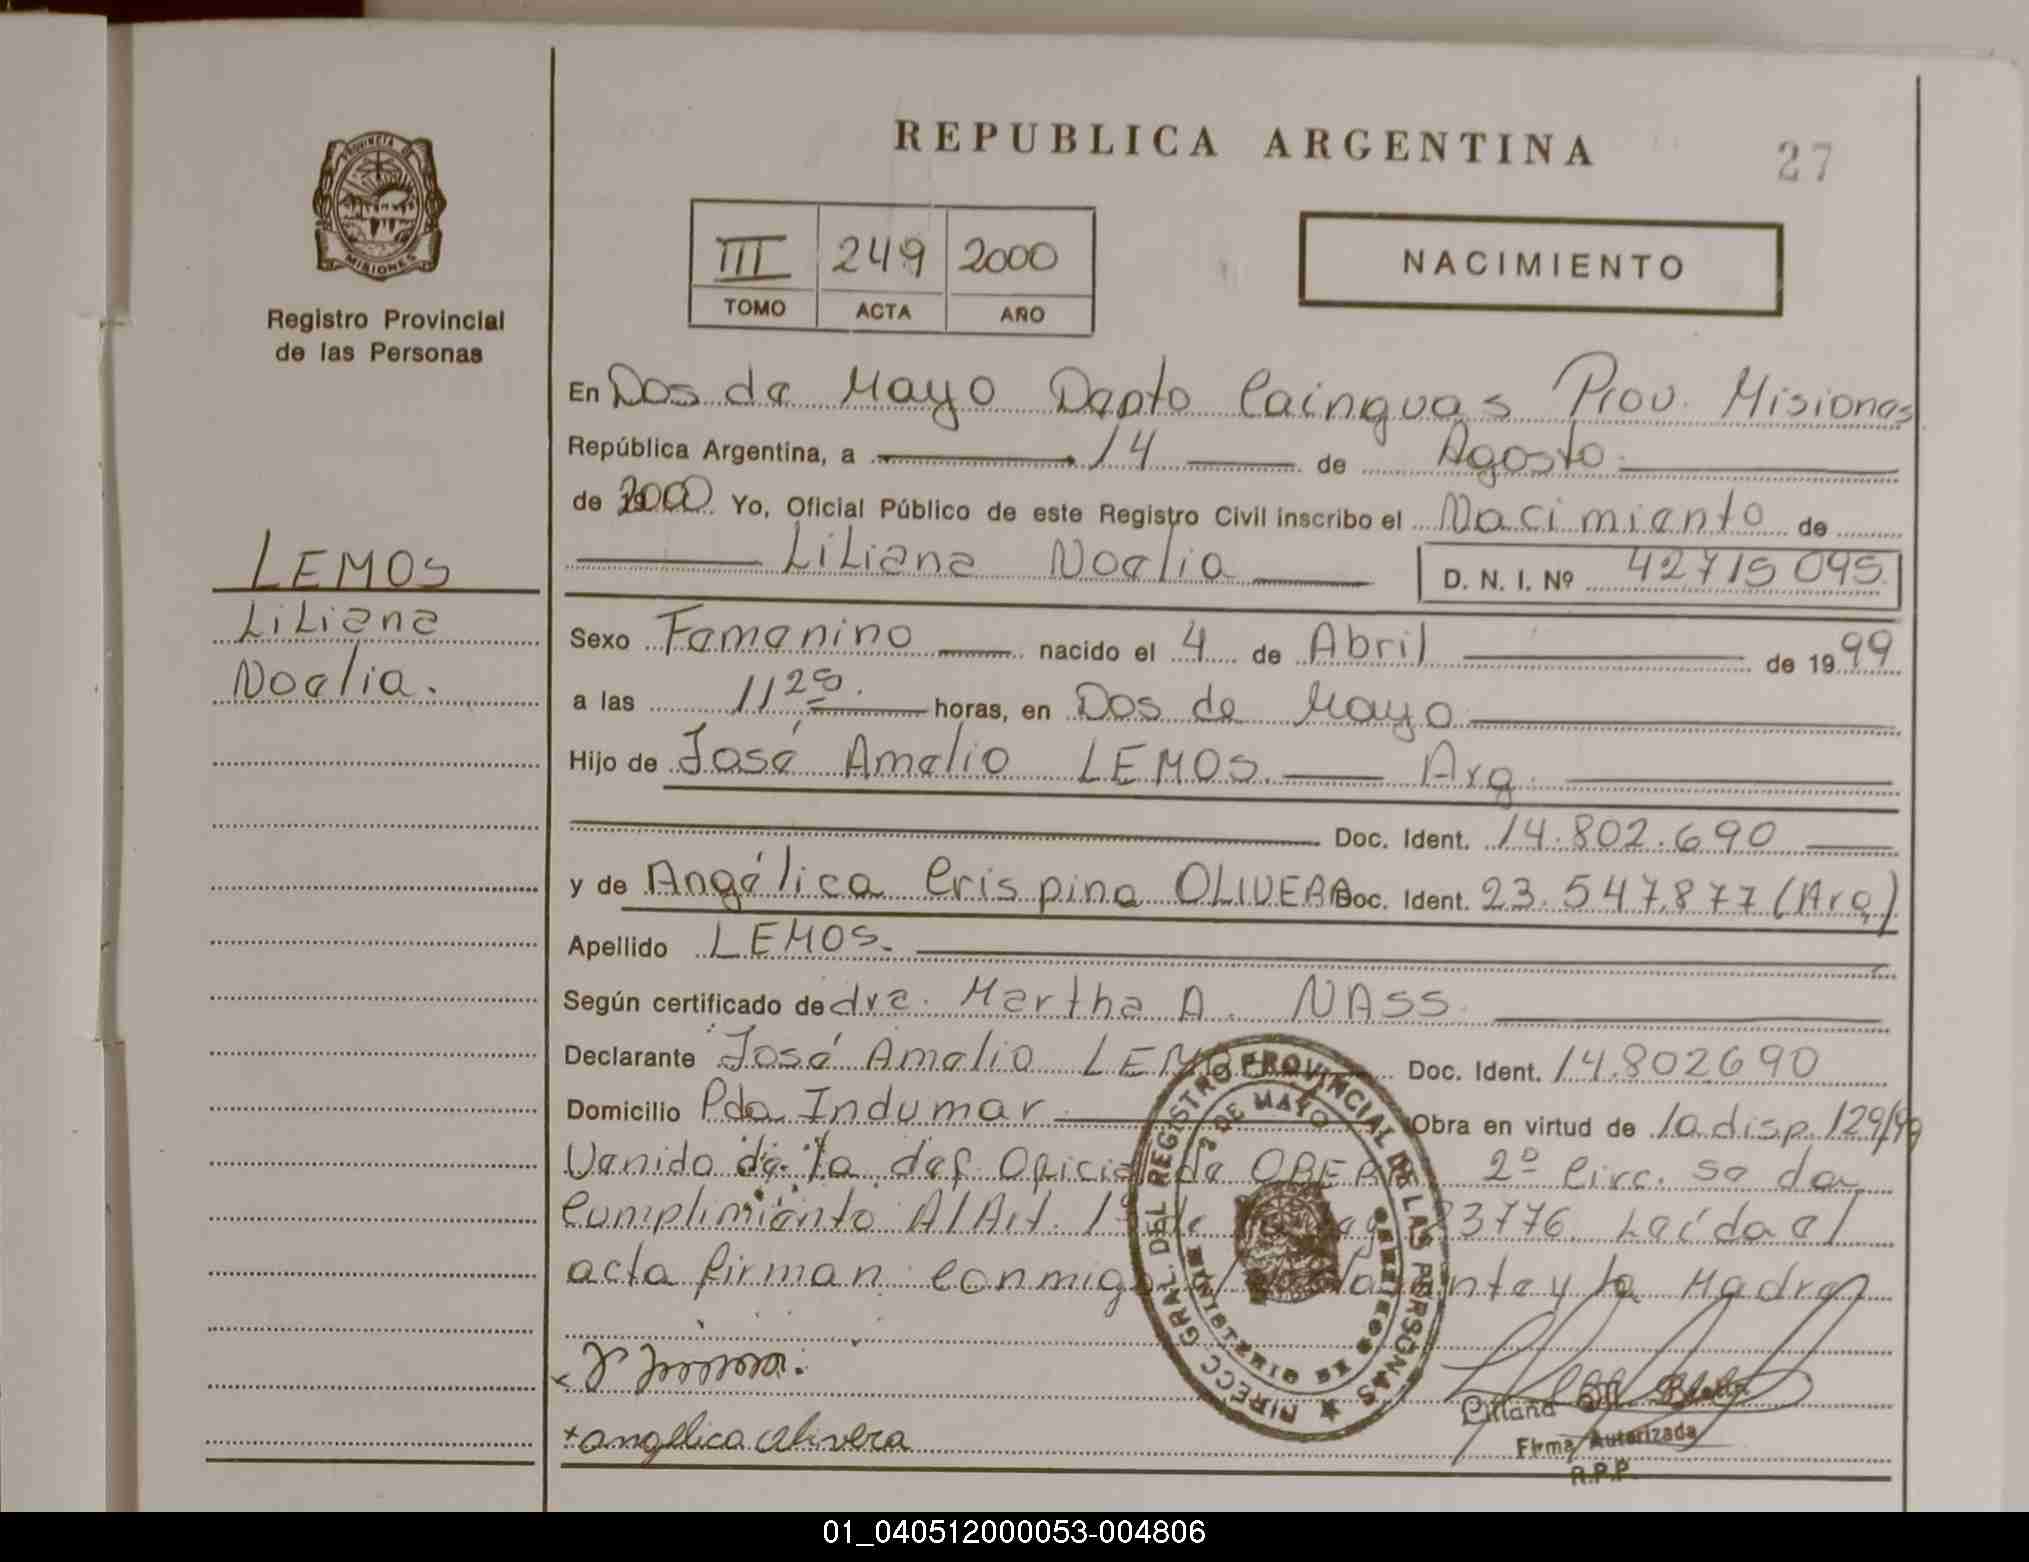 REPUBLICA ARGENTINA
27
PROVINCIA DE
MISIONES
Registro Provincial
de las Personas
III 249 2000
TOMO ACTA AÑO
NACIMIENTO
En Dos de Mayo Depto Cainguas Prov. Misiones
República Argentina, a 14 de Agosto
de 2000 Yo, Oficial Público de este Registro Civil inscribo el Nacimiento de
Liliana Noelia D. N. I. Nº 42715095
LEMOS
Liliana
Noelia.
Sexo Femenino nacido el 4 de Abril de 1999
a las 11 25 horas, en Dos de Mayo
Hijo de José Amelio LEMOS Arg.
Doc. Ident. 14.802.690
y de Angélica Crispina OLIVERA Doc. Ident. 23.547.877 (Arg)
Apellido LEMOS.
Según certificado de dra. Martha A. NASS
Declarante José Amelio LEMOS Doc. Ident. 14.802690
Domicilio Pda Indumar Obra en virtud de la disp. 129/99
Venida de la def. Oficial de OBERA 2º Circ. se da
Cumplimiento Al Art. 83776 Leída el
acta firman conmigo y la Madre
DIRECC GRAL. DEL REGISTRO PROVINCIAL DE LAS PERSONAS
2 DE MAYO
MINISTERIO DE GOBIERNO
Angelica Olivera
Liliana
Firma Autorizada
R.P.P.
01_040512000053-004806